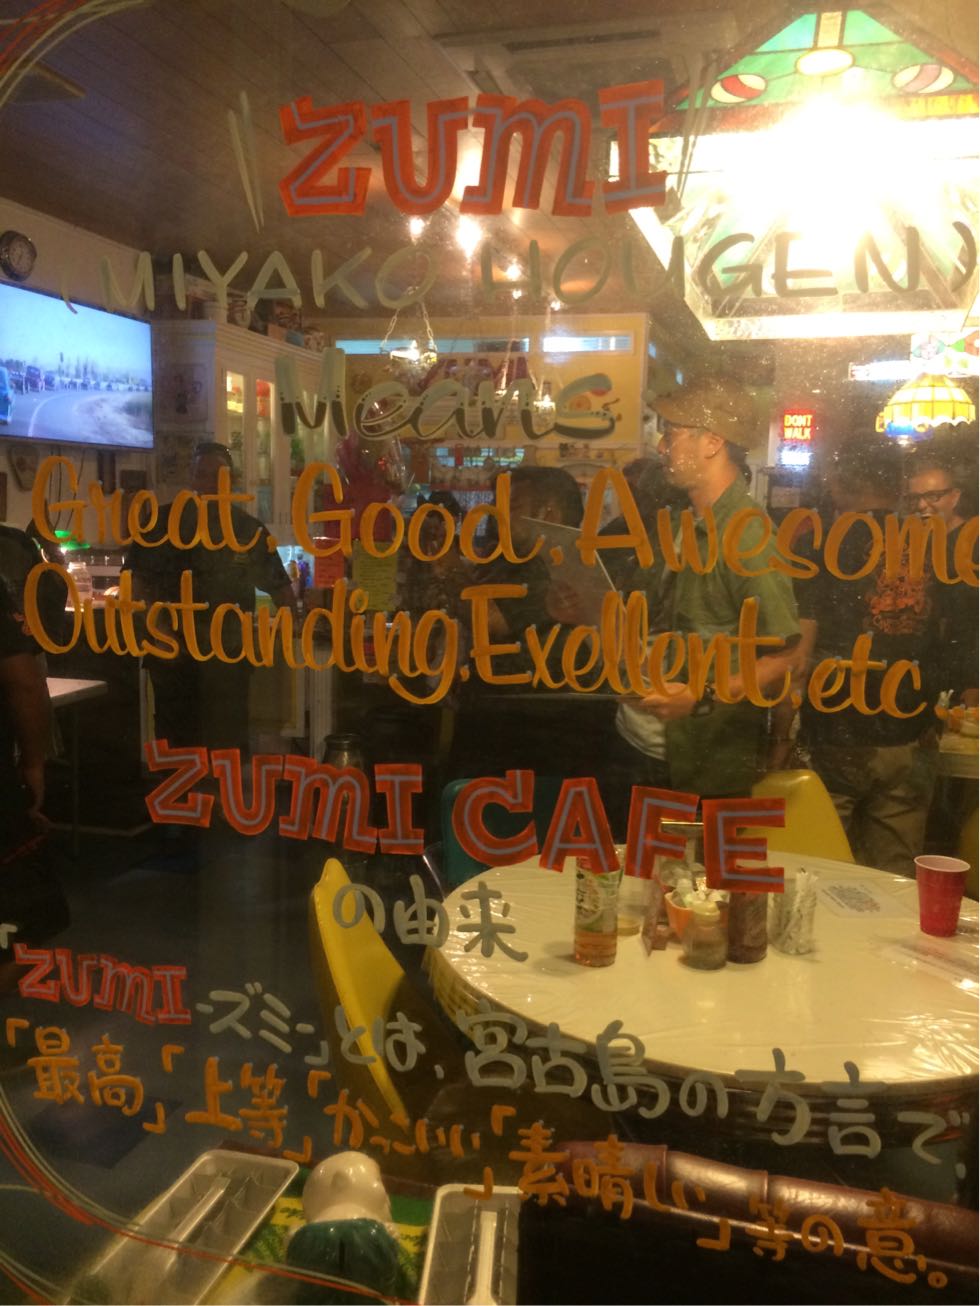 ZUMI
(MIYAKO HOUGEN)
Means
Great, Good, Awesome
Outstanding, Exellent, etc.
ZUMI CAFE
の由来
「ZUMI-ズミ-」とは、宮古島の方言で、
「最高」「上等」「かっこいい」「素晴しい」等の意。
DONT
WALK